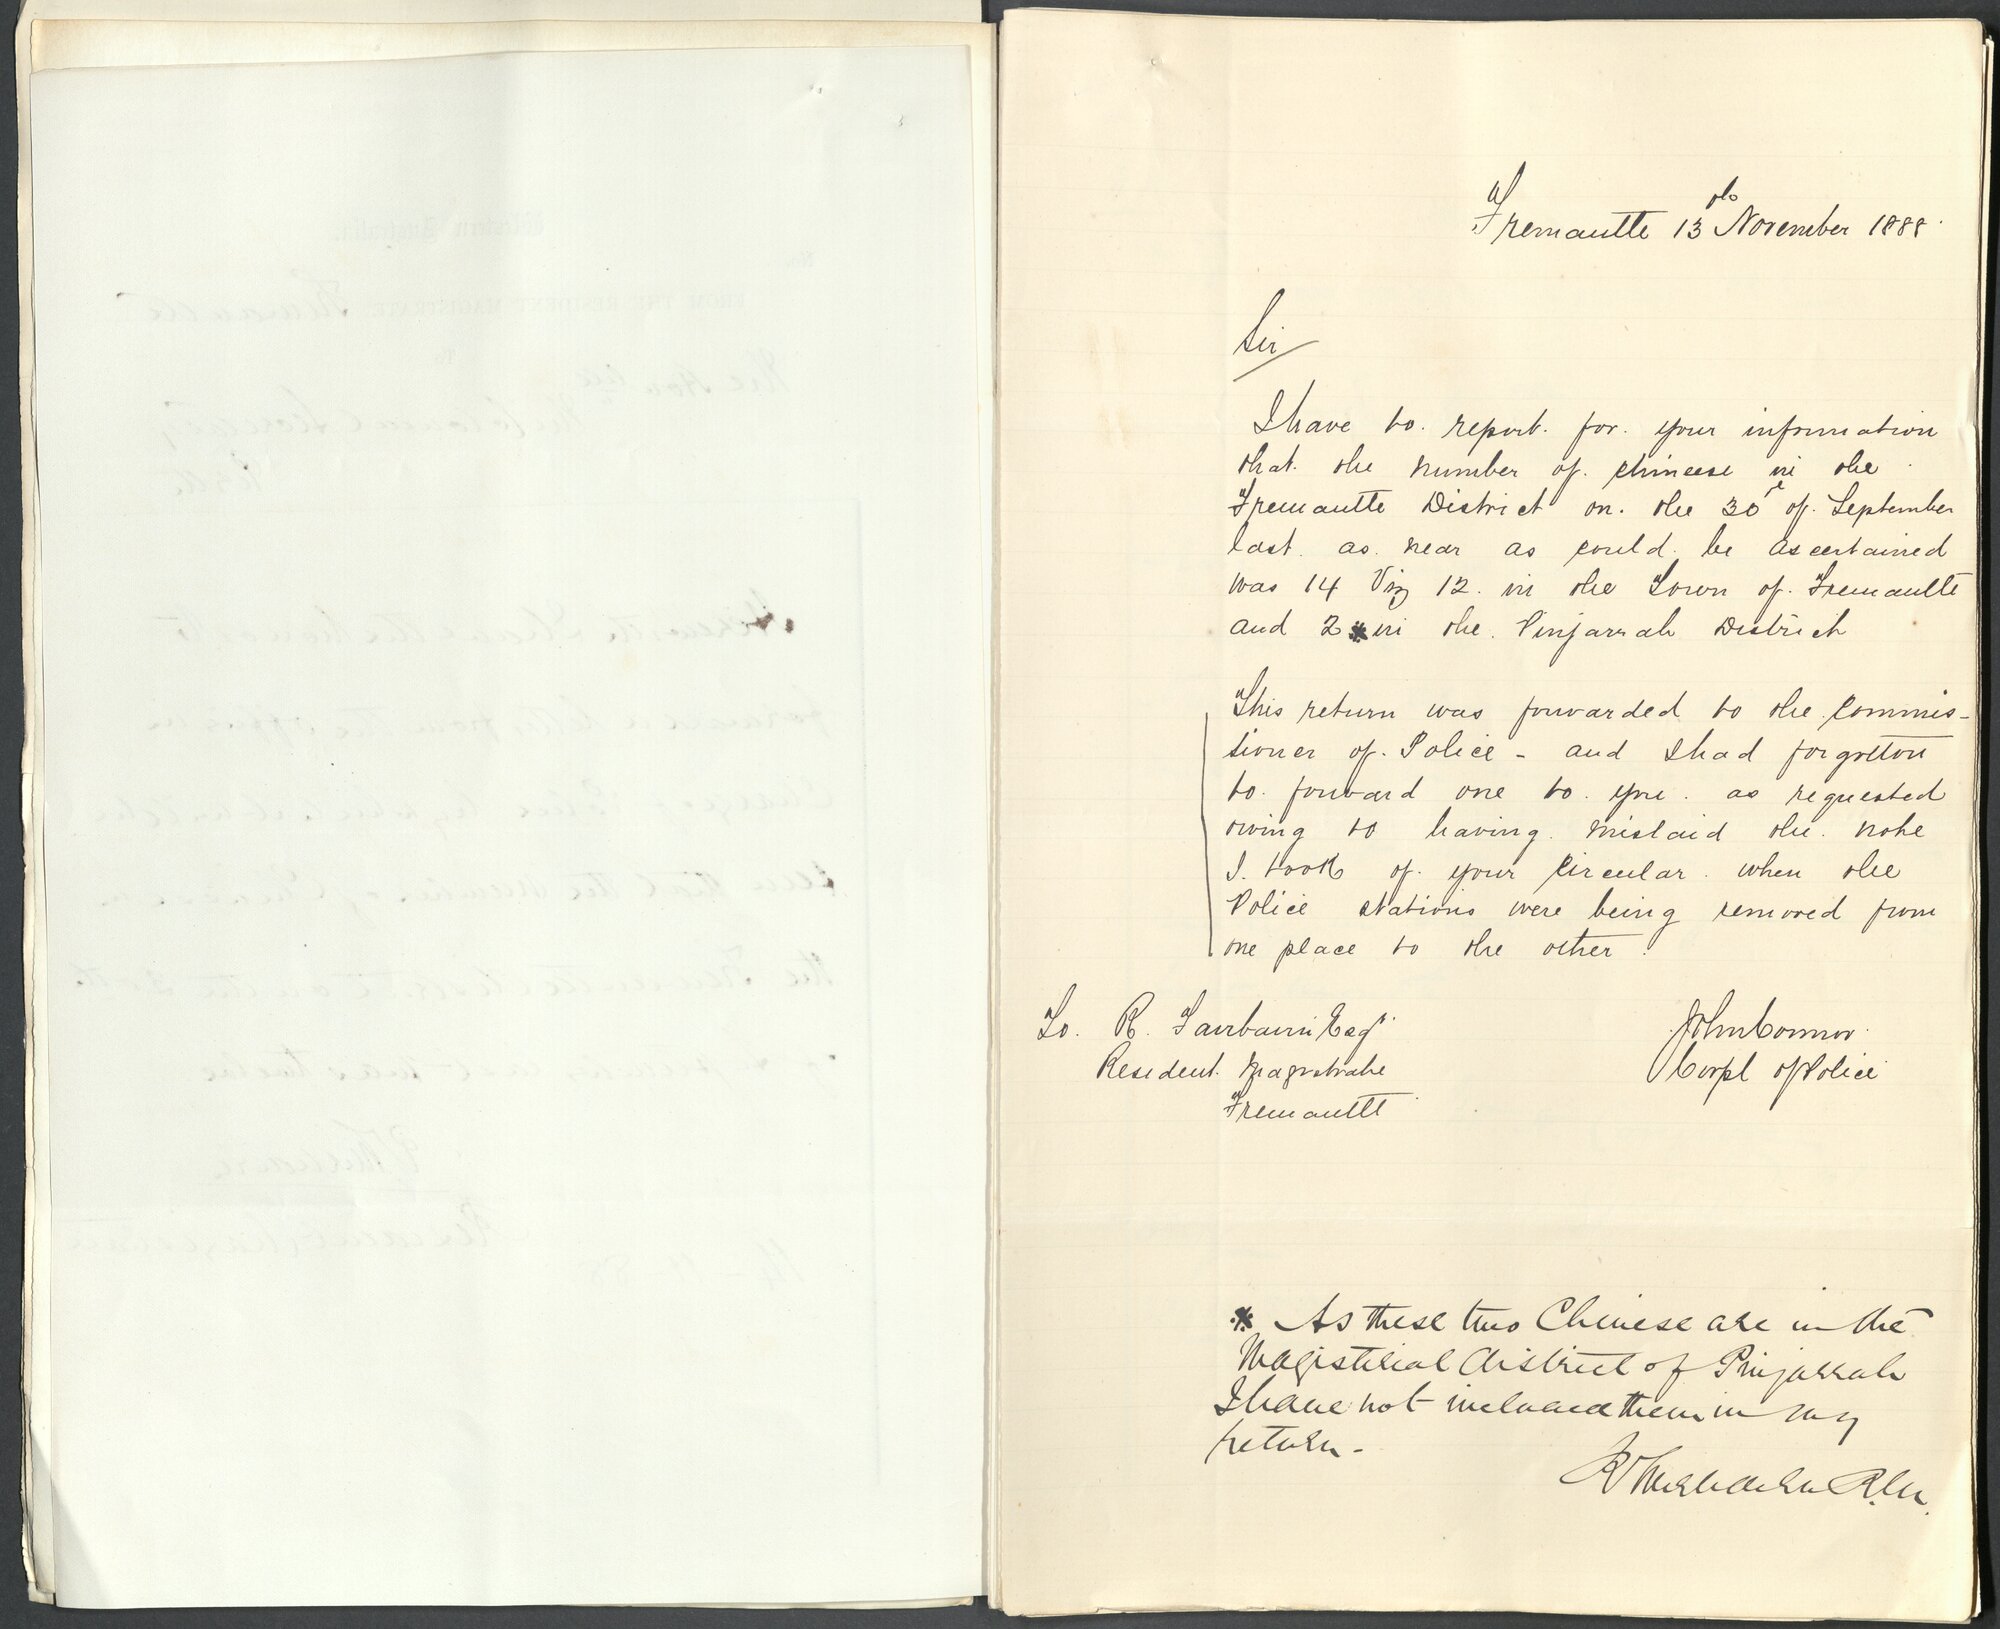 Fremantle 13th November 1888
Sir
I have to report for your information
that the number of Chineese in the
Fremantle District on the 30th of September
last as near as could be ascertained
was 14 Viz 12 in the Town of Fremantle
and 2 * in the Pinjarrah District
This return was forwarded to the Commis-
sioner of Police - and I had forgotton
to forward one to you as requested
owing to having mislaid the note
I took of your Circular when the
Police stations were being removed from
one place to the other.
To. R. Fairbairn Esqr
Resident Magistrate
Fremantle
John Connor
Corpl of Police
* As these two Chinese are in the
Magisterial district of Pinjarrah
I have not included them in my
return -
R.M.